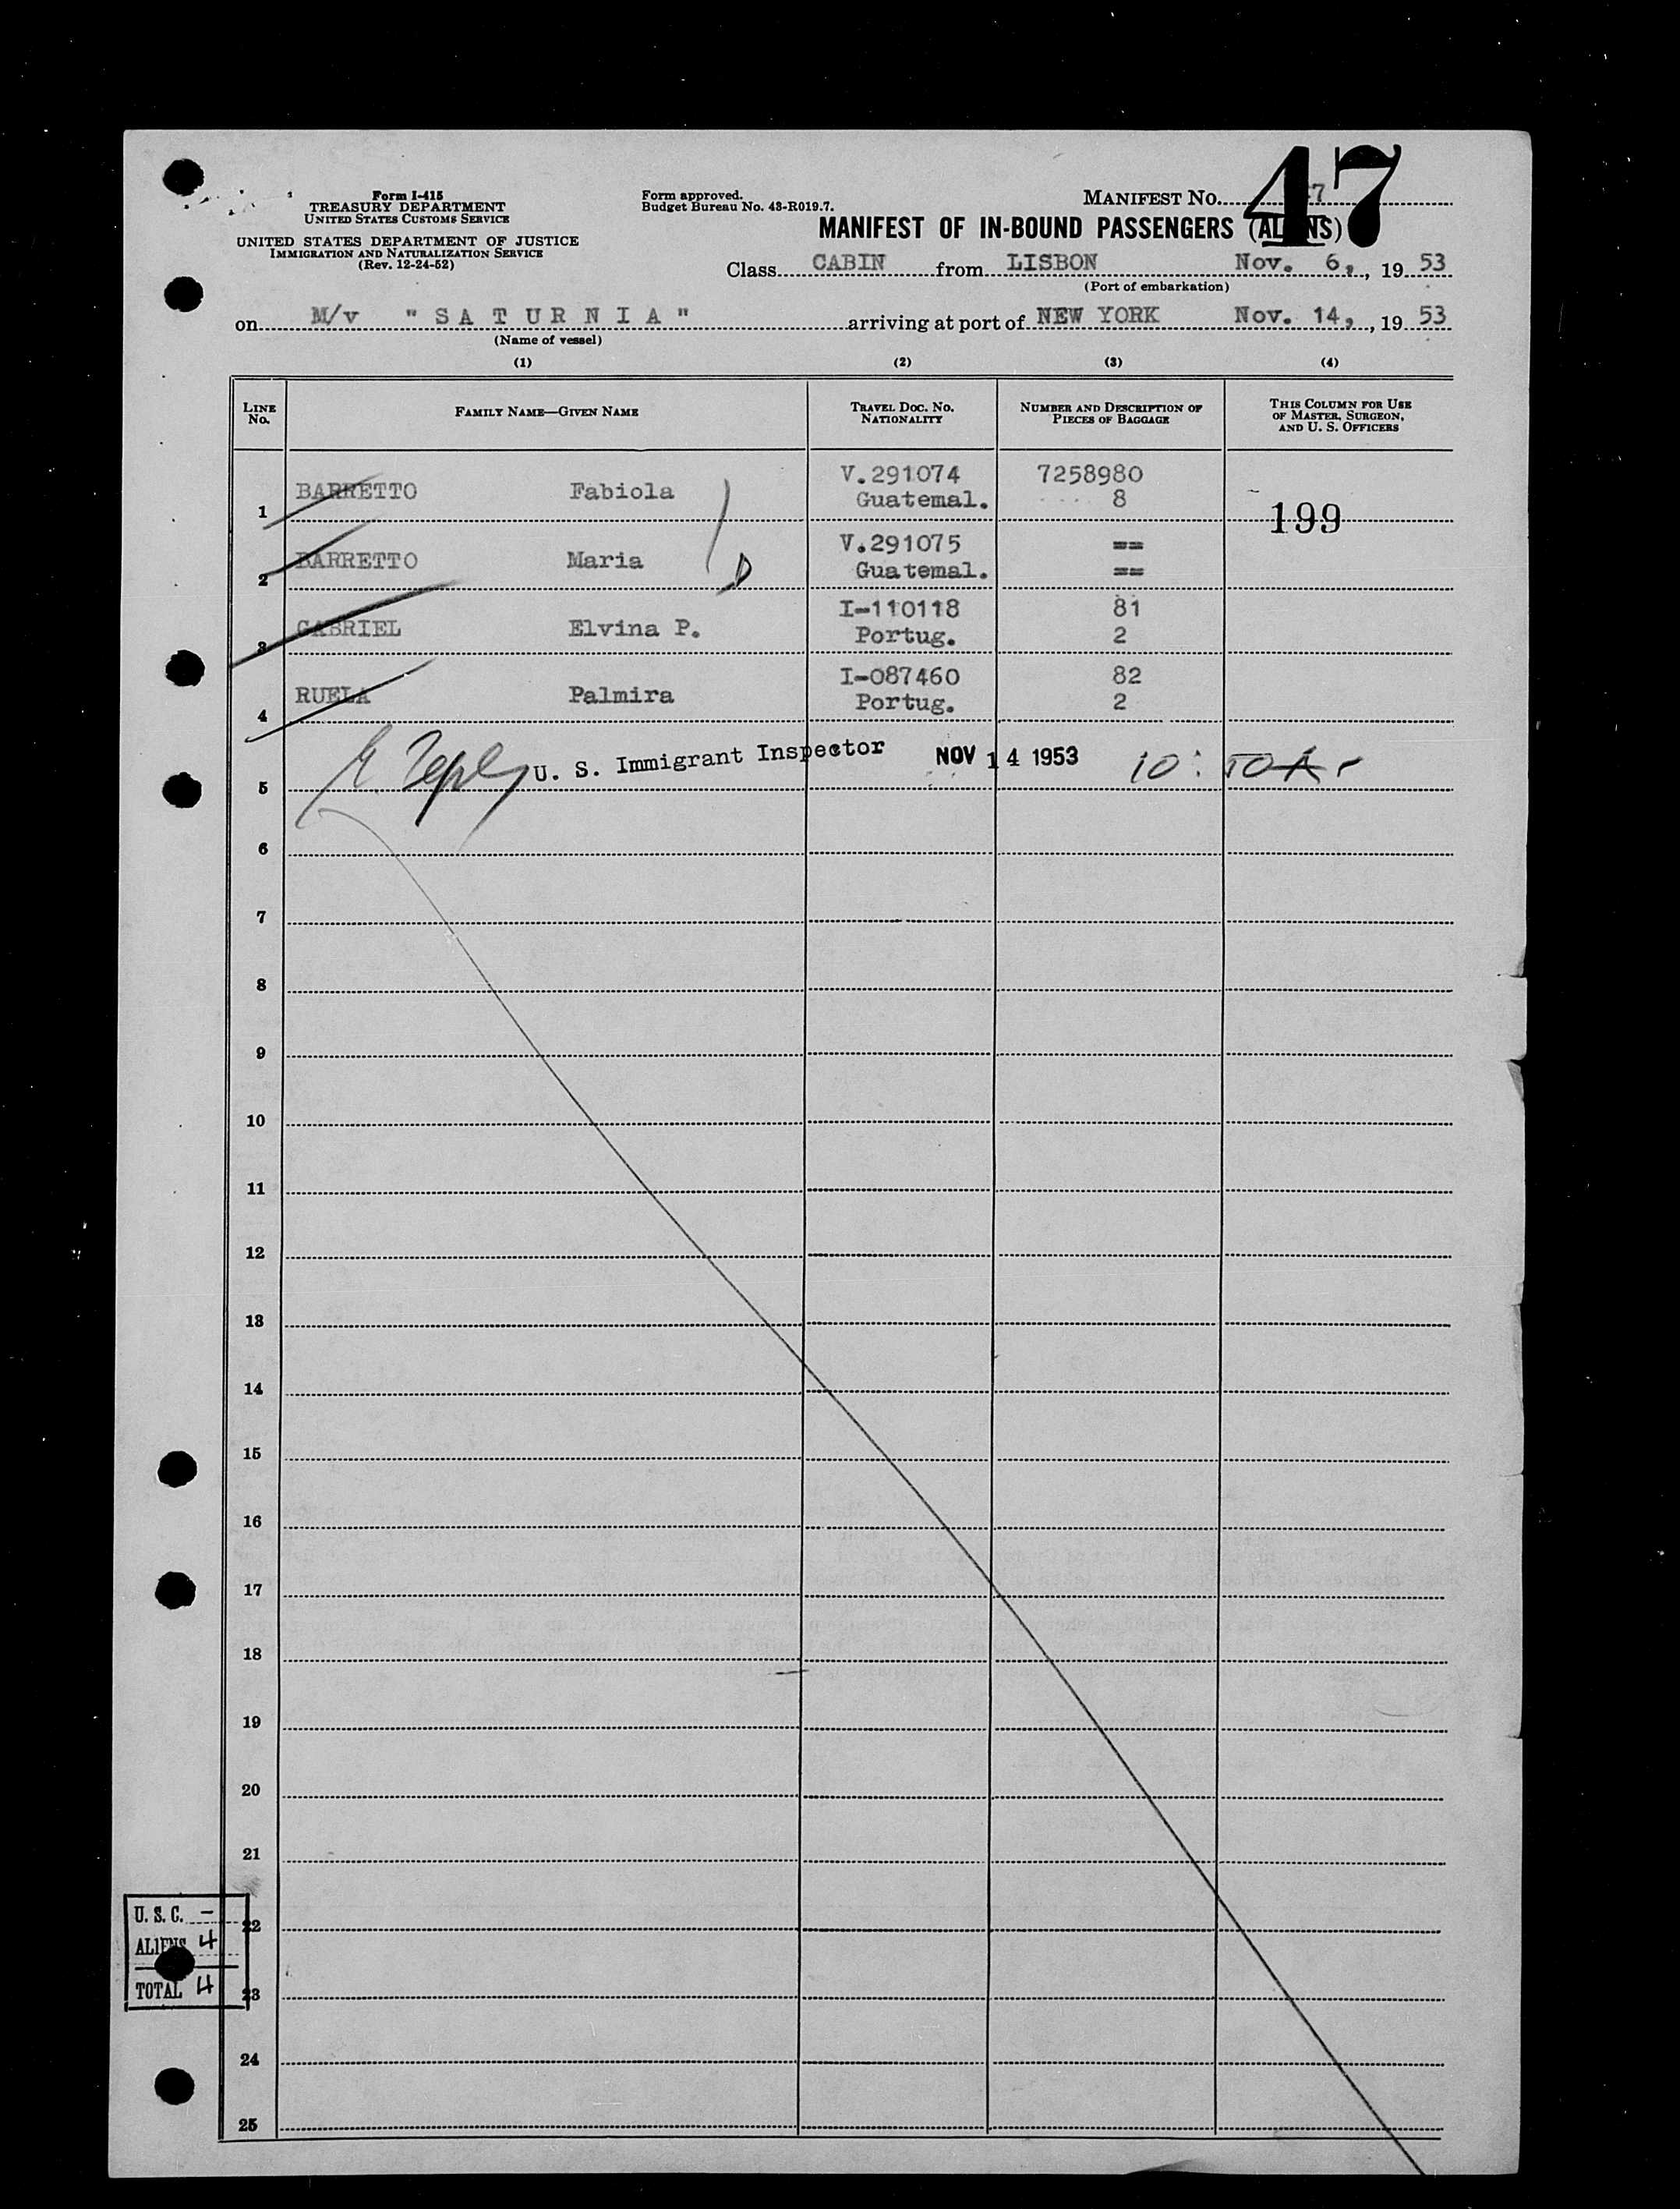 47
Form I-415
TREASURY DEPARTMENT
UNITED STATES CUSTOMS SERVICE
UNITED STATES DEPARTMENT OF JUSTICE
IMMIGRATION AND NATURALIZATION SERVICE
(Rev. 12-24-52)
Form approved.
Budget Bureau No. 43-R019.7.
MANIFEST No. 7
MANIFEST OF IN-BOUND PASSENGERS (ALIENS)
Class CABIN from LISBON Nov. 6, , 19 53
(Port of embarkation)
on M/v "SATURNIA" arriving at port of NEW YORK Nov. 14, , 19 53
(Name of vessel)
(1) (2) (3) (4)
LINE No. FAMILY NAME—GIVEN NAME TRAVEL DOC. No. NATIONALITY NUMBER AND DESCRIPTION OF PIECES OF BAGGAGE THIS COLUMN FOR USE OF MASTER, SURGEON, AND U. S. OFFICERS
V.291074 7258980
1 BARRETTO Fabiola Guatemal. 8 199
V.291075 ==
2 BARRETTO Maria Guatemal. ==
I-110118 81
3 GABRIEL Elvina P. Portug. 2
I-087460 82
4 RUELA Palmira Portug. 2
5 U. S. Immigrant Inspector NOV 14 1953 10:
6
7
8
9
10
11
12
13
14
15
16
17
18
19
20
21
22
23
24
25
U. S. C. –
ALIENS 4
TOTAL 4